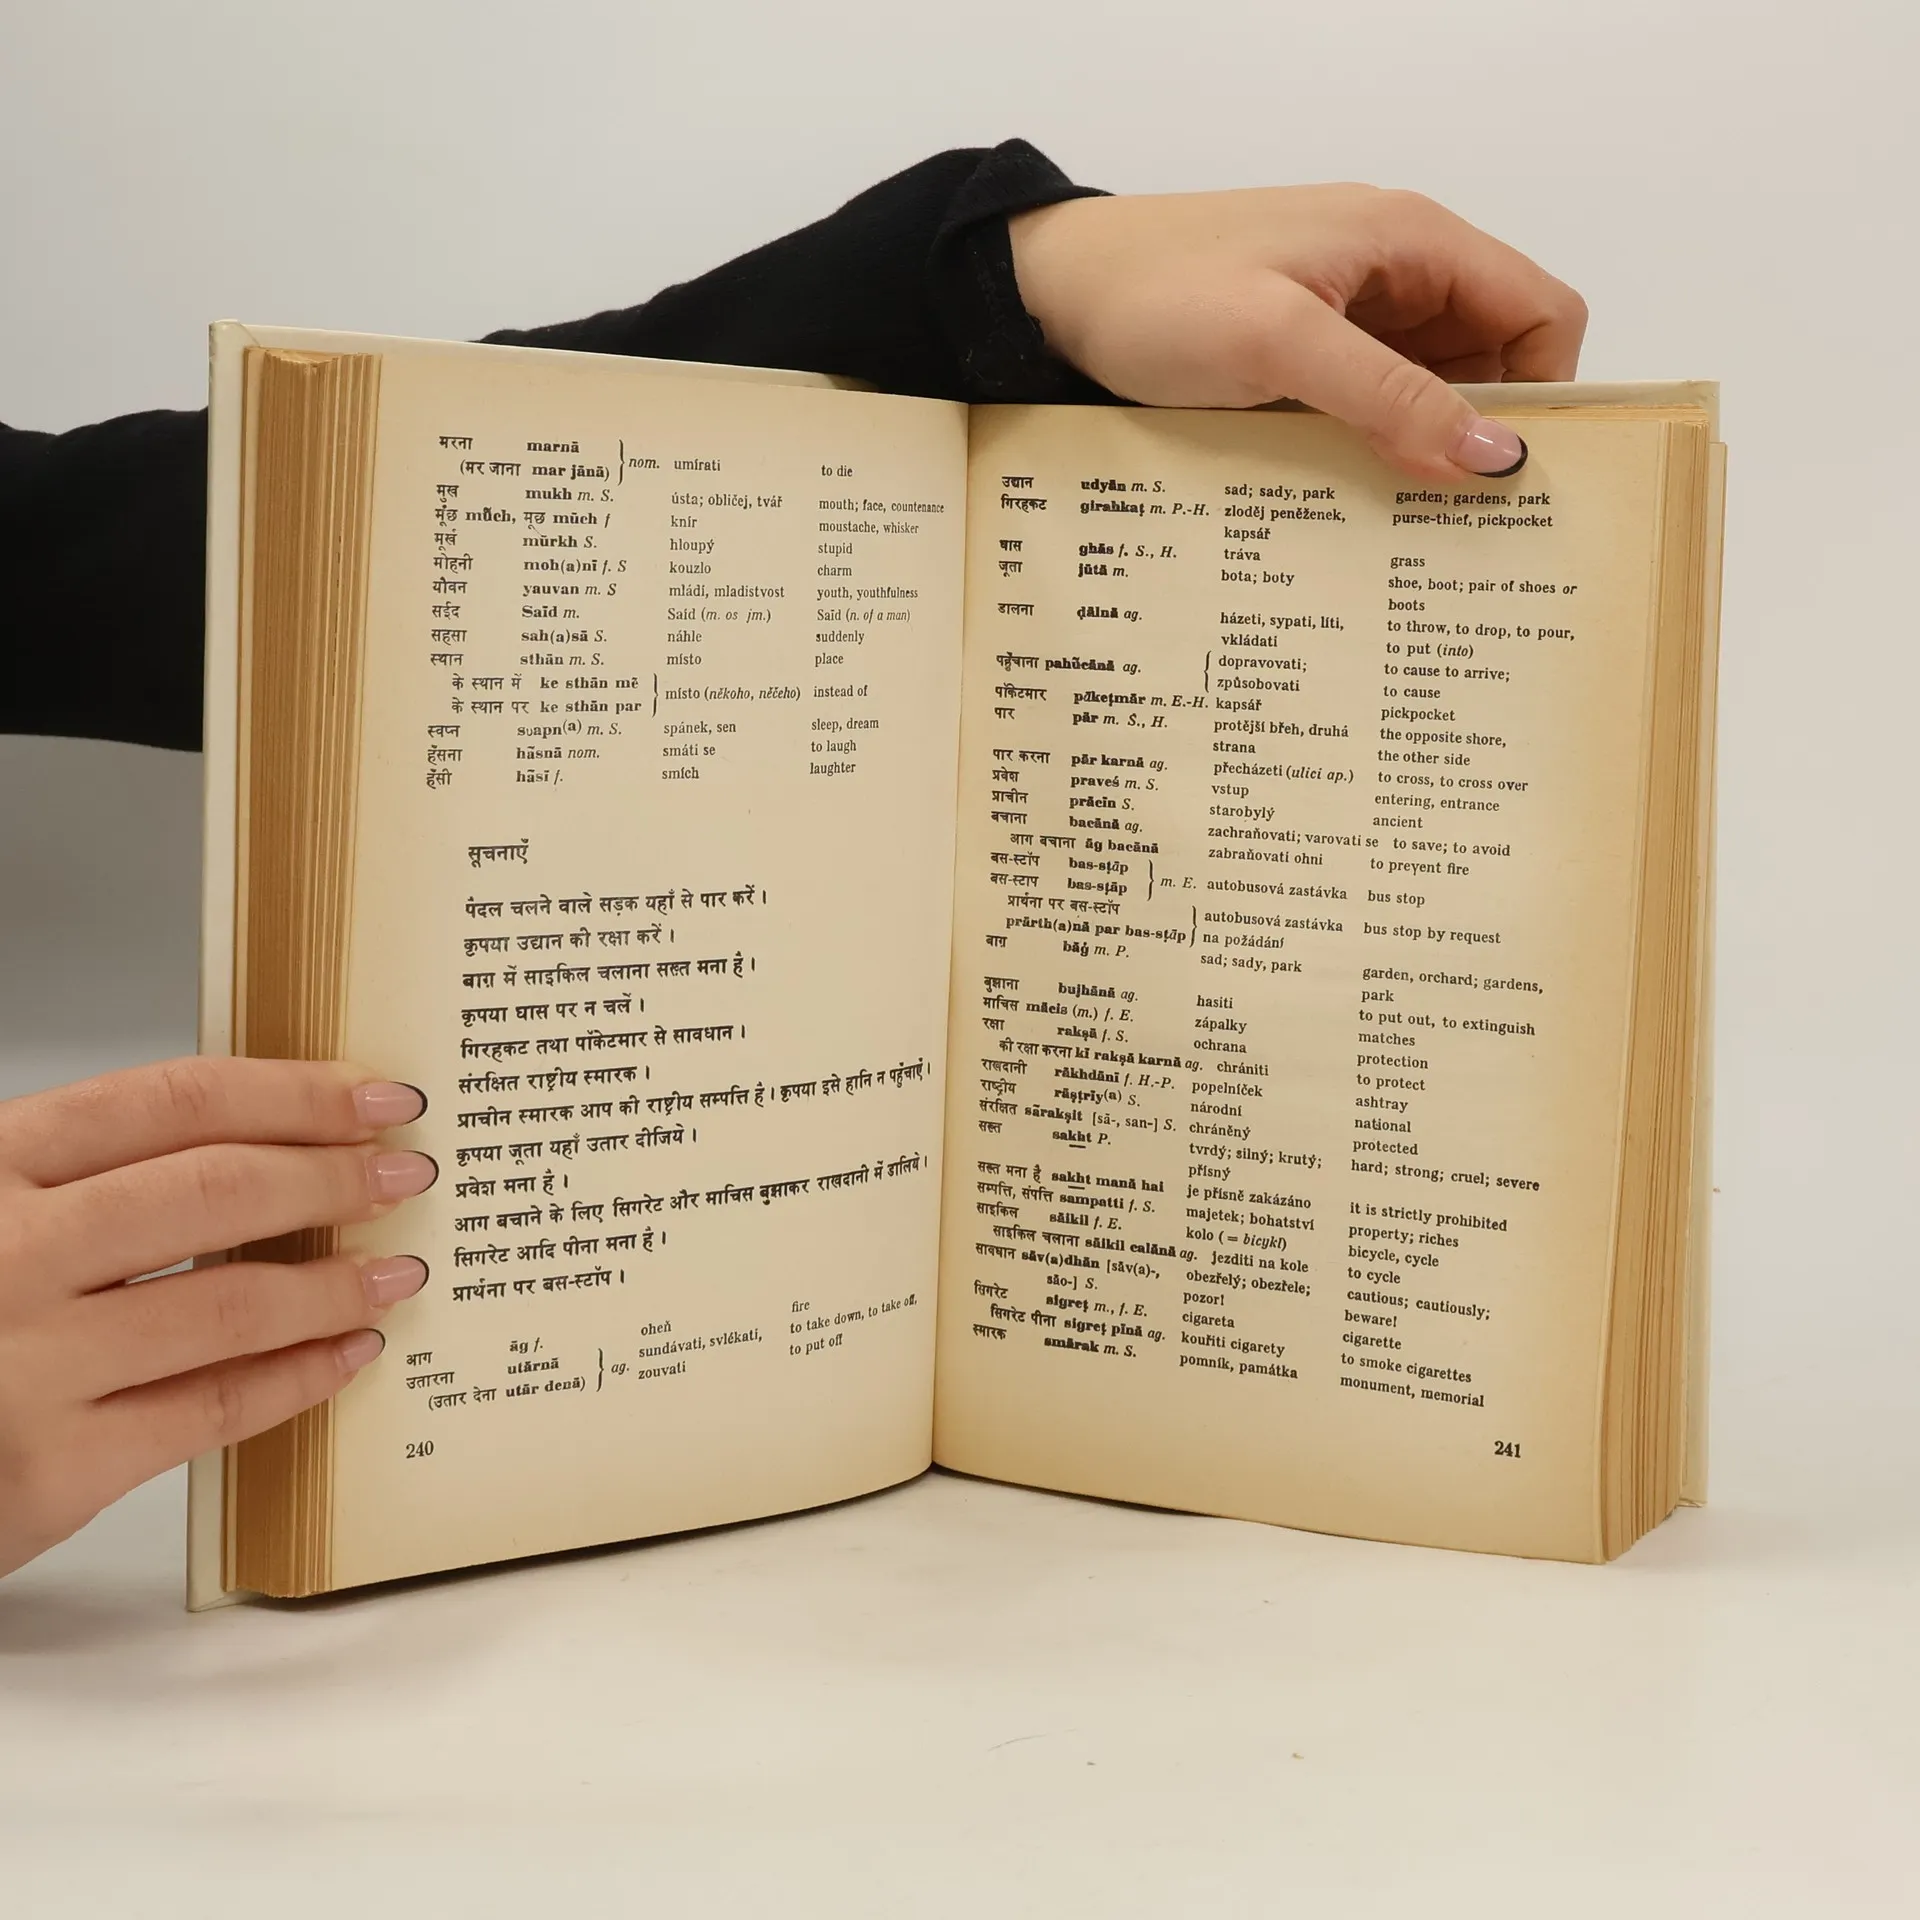 मरना marnā
(मर जाना mar jānā) } nom. umírati to die
मुख mukh m. S. ústa; obličej, tvář mouth; face, countenance
मूँछ mū̃ch, मूछ mūch f knír moustache, whisker
मूर्ख mūrkh S. hloupý stupid
मोहनी moh(a)nī f. S kouzlo charm
यौवन yauvan m. S mládí, mladistvost youth, youthfulness
सईद Saīd m. Saíd (m. os jm.) Saīd (n. of a man)
सहसा sah(a)sā S. náhle suddenly
स्थान sthān m. S. místo place
के स्थान में ke sthān mẽ
के स्थान पर ke sthān par } místo (někoho, něčeho) instead of
स्वप्न svapn(a) m. S. spánek, sen sleep, dream
हँसना hãsnā nom. smáti se to laugh
हँसी hãsī f. smích laughter
सूचनाएँ
पैदल चलने वाले सड़क यहाँ से पार करें ।
कृपया उद्यान की रक्षा करें ।
बाग़ में साइकिल चलाना सख़्त मना है ।
कृपया घास पर न चलें ।
गिरहकट तथा पॉकेटमार से सावधान ।
संरक्षित राष्ट्रीय स्मारक ।
प्राचीन स्मारक आप की राष्ट्रीय सम्पत्ति है । कृपया इसे हानि न पहुँचाएँ ।
कृपया जूता यहाँ उतार दीजिये ।
प्रवेश मना है ।
आग बचाने के लिए सिगरेट और माचिस बुझाकर राखदानी में डालिये ।
सिगरेट आदि पीना मना है ।
प्रार्थना पर बस-स्टॉप ।
आग āg f. oheň fire
उतारना utārnā
(उतार देना utār denā) } ag. sundávati, svlékati, to take down, to take off,
zouvati to put off
240
उद्यान udyān m. S. sad; sady, park garden; gardens, park
गिरहकट girahkaṭ m. P.-H. zloděj peněženek, purse-thief, pickpocket
kapsář
घास ghās f. S., H. tráva grass
जूता jūtā m. bota; boty shoe, boot; pair of shoes or
boots
डालना ḍālnā ag. házeti, sypati, líti, to throw, to drop, to pour,
vkládati to put (into)
पहुँचाना pahũcānā ag. { dopravovati; to cause to arrive;
způsobovati to cause
पॉकेटमार pākeṭmār m. E.-H. kapsář pickpocket
पार pār m. S., H. protější břeh, druhá the opposite shore,
strana the other side
पार करना pār karnā ag. přecházeti (ulici ap.) to cross, to cross over
प्रवेश praveś m. S. vstup entering, entrance
प्राचीन prācīn S. starobylý ancient
बचाना bacānā ag. zachraňovati; varovati se to save; to avoid
आग बचाना āg bacānā zabraňovati ohni to prevent fire
बस-स्टॉप bas-sṭāp
बस-स्टाप bas-sṭāp } m. E. autobusová zastávka bus stop
प्रार्थना पर बस-स्टॉप
prārth(a)nā par bas-sṭāp } autobusová zastávka bus stop by request
na požádání
बाग़ bāġ m. P. sad; sady, park garden, orchard; gardens,
park
बुझाना bujhānā ag. hasiti to put out, to extinguish
माचिस mācis (m.) f. E. zápalky matches
रक्षा rakṣā f. S. ochrana protection
की रक्षा करना kī rakṣā karnā ag. chrániti to protect
राखदानी rākhdānī f. H.-P. popelníček ashtray
राष्ट्रीय rāṣṭrīy(a) S. národní national
संरक्षित sãrakṣit [sā-, san-] S. chráněný protected
सख़्त sakht P. tvrdý; silný; krutý; hard; strong; cruel; severe
přísný
सख़्त मना है sakht manā hai je přísně zakázáno it is strictly prohibited
सम्पत्ति, संपत्ति sampatti f. S. majetek; bohatství property; riches
साइकिल sāikil f. E. kolo (= bicykl) bicycle, cycle
साइकिल चलाना sāikil calānā ag. jezditi na kole to cycle
सावधान sāv(a)dhān [sāv(a)-, obezřelý; obezřele; cautious; cautiously;
sāo-] S. pozor! beware!
सिगरेट sigreṭ m., f. E. cigareta cigarette
सिगरेट पीना sigreṭ pīnā ag. kouřiti cigarety to smoke cigarettes
स्मारक smārak m. S. pomník, památka monument, memorial
241